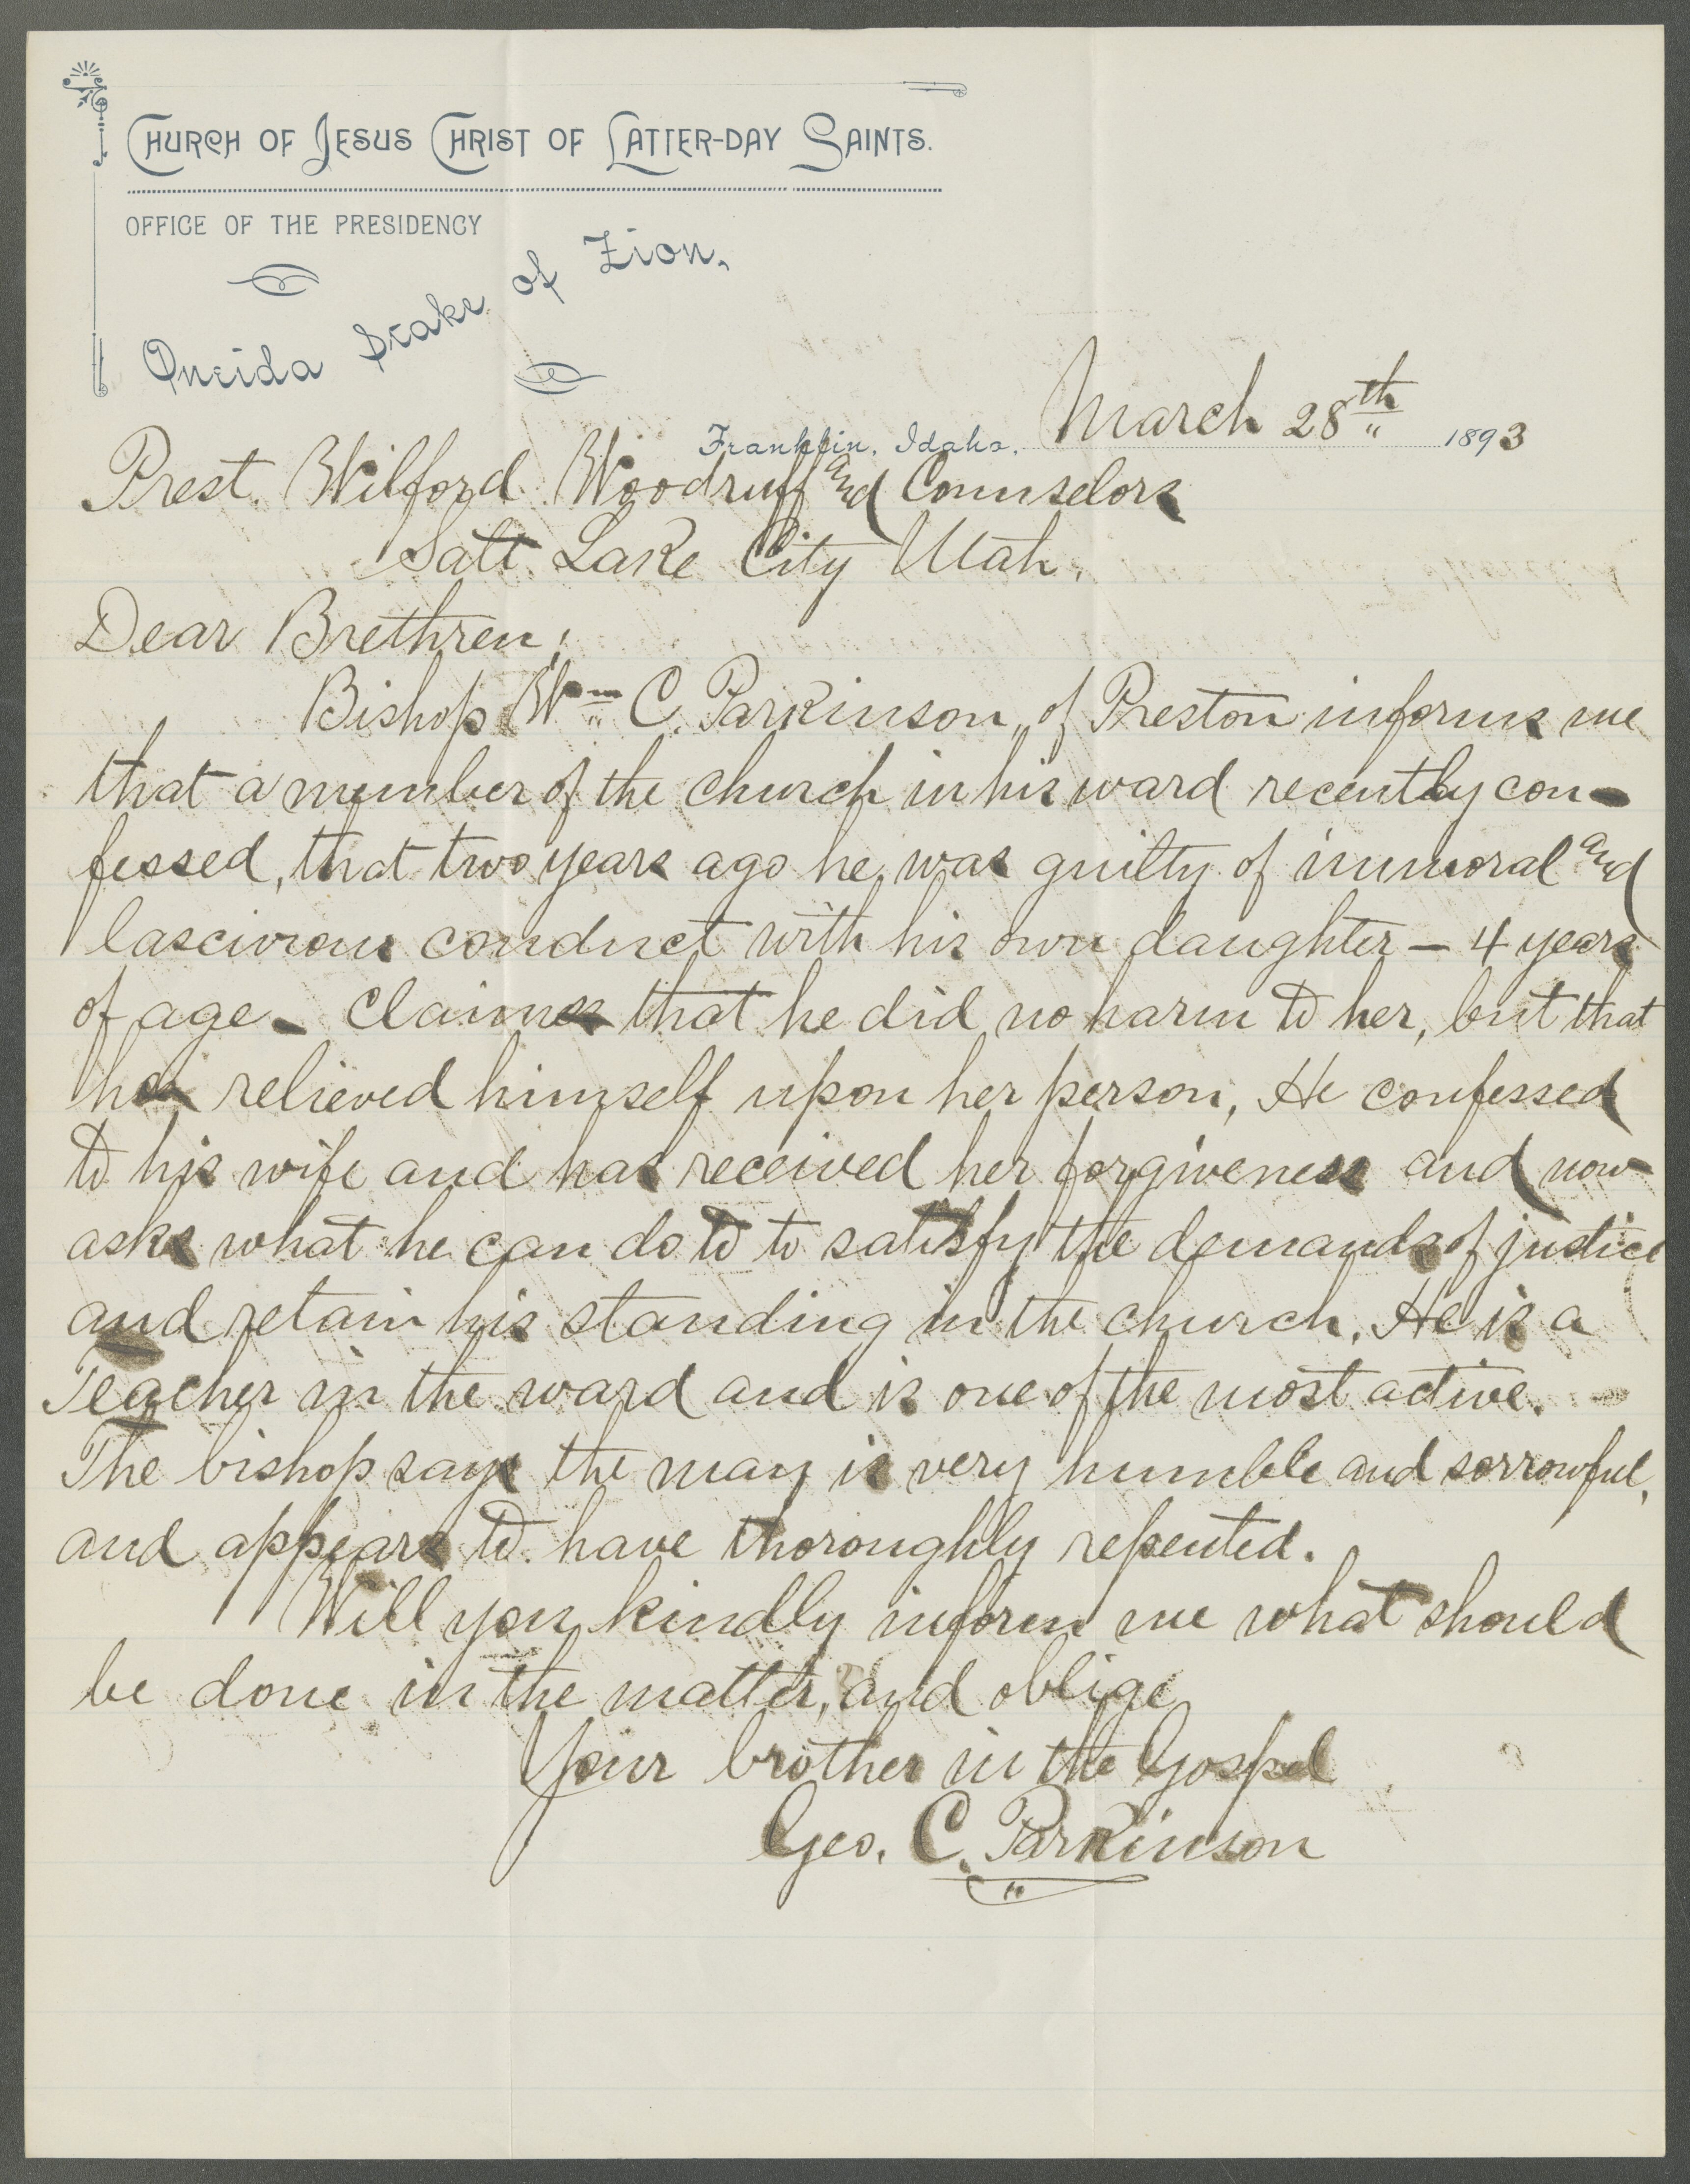 CHURCH OF JESUS CHRIST OF LATTER-DAY SAINTS.
OFFICE OF THE PRESIDENCY
Oneida Stake of Zion.
Franklin, Idaho. March 28th 1893
Prest. Wilford Woodruff and Counselors
Salt Lake City Utah.
Dear Brethren;
Bishop Wm C. Parkinson, of Preston informs me
that a member of the church in his ward recently con-
fessed, that two years ago he was guilty of immoral and
lascivious conduct with his own daughter – 4 years
of age – Claimes that he did no harm to her, but that
he relieved himself upon her person, He confessed
to his wife and has received her forgiveness and now
asks what he can do to to satisfy the demands of justice
and retain his standing in the church. He is a
Teacher in the ward and is one of the most active.
The bishop says the man is very humble and sorrowful,
and appears to have thoroughly repented.
Will you kindly inform me what should
be done in the matter, and oblige
Your brother in the Gospel
Geo. C. Parkinson